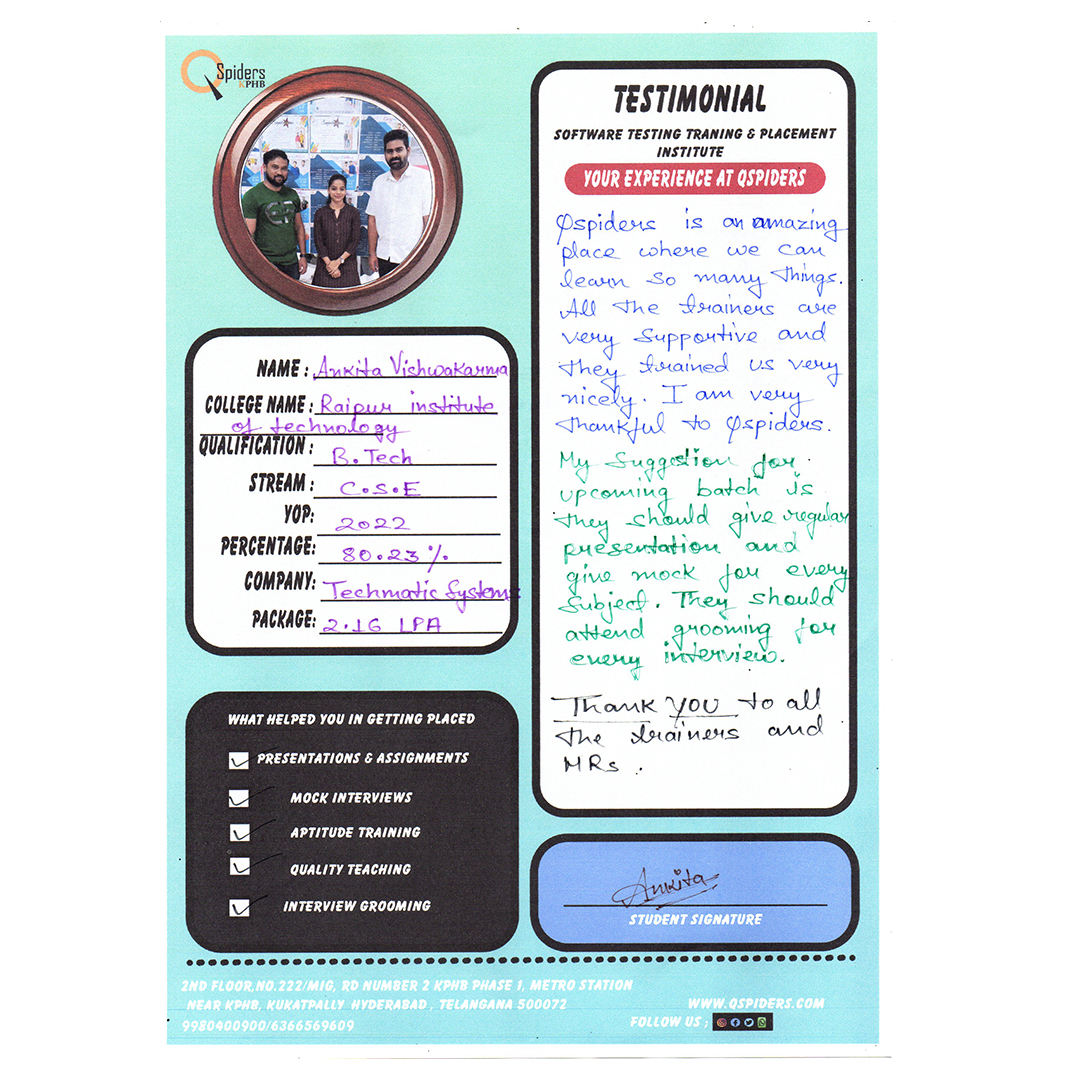 QSpiders
KPHB
TESTIMONIAL
SOFTWARE TESTING TRANING & PLACEMENT
INSTITUTE
YOUR EXPERIENCE AT QSPIDERS
Qspiders is an amazing
place where we can
learn so many things.
All the trainers are
very supportive and
they trained us very
nicely. I am very
thankful to Qspiders.
My Suggestion for
upcoming batch is
they should give regular
presentation and
give mock for every
Subject. They should
attend grooming for
every interview.
Thank YOU to all
the trainers and
MRs.
NAME : Ankita Vishwakarma
COLLEGE NAME : Raipur institute
of technology
QUALIFICATION : B.Tech
STREAM : C.S.E
YOP: 2022
PERCENTAGE: 80.23%.
COMPANY: Techmatic Systems
PACKAGE: 2.16 LPA
WHAT HELPED YOU IN GETTING PLACED
PRESENTATIONS & ASSIGNMENTS
MOCK INTERVIEWS
APTITUDE TRAINING
QUALITY TEACHING
INTERVIEW GROOMING
Ankita
STUDENT SIGNATURE
2ND FLOOR,NO.222/MIG, RD NUMBER 2 KPHB PHASE 1, METRO STATION
NEAR KPHB, KUKATPALLY HYDERABAD , TELANGANA 500072
9980400900/6366569609
WWW.QSPIDERS.COM
FOLLOW US :